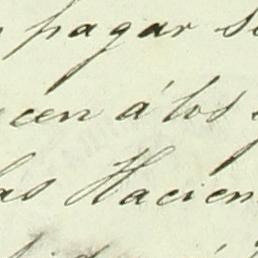 pagar se
cen á los
las Hacien